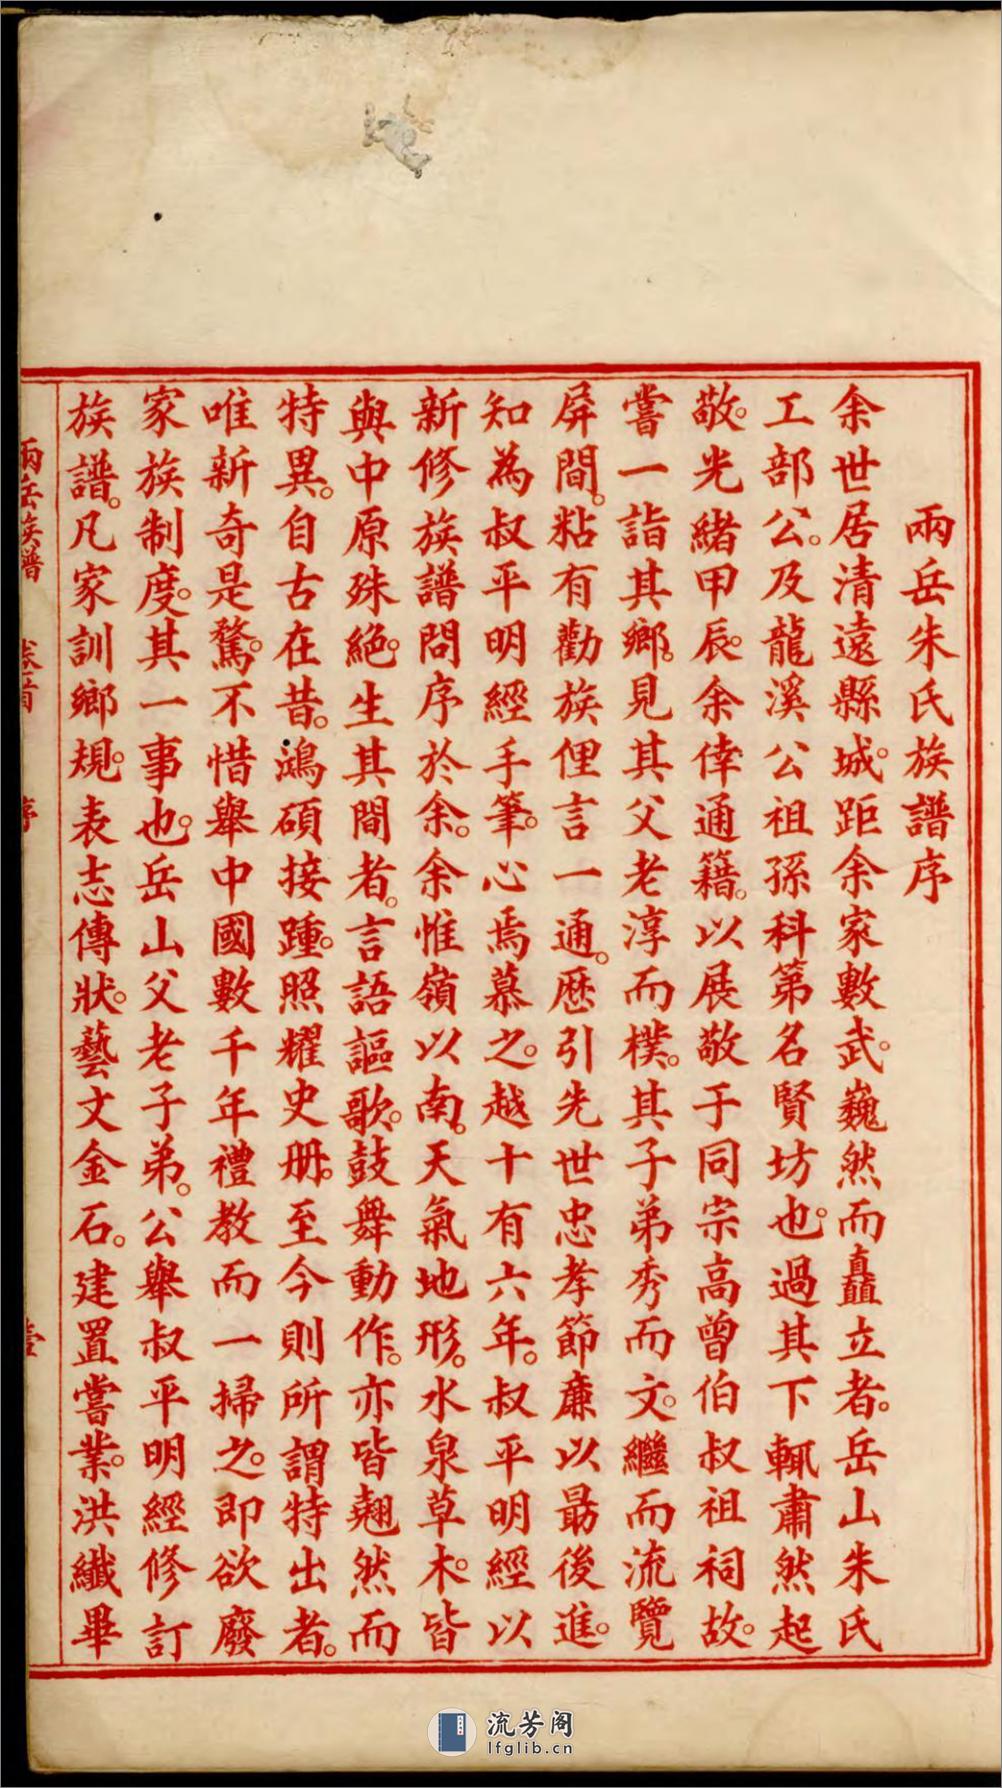 兩岳朱氏族譜序
余世居清遠縣城。距余家數武。巍然而矗立者。岳山朱氏
工部公。及龍溪公祖孫科第名賢坊也。過其下輒肅然起
敬。光緒甲辰。余倖通籍。以展敬于同宗高曾伯叔祖祠故。
嘗一詣其鄉。見其父老淳而樸。其子弟秀而文。繼而流覽
屏間。粘有勸族俚言一通。歷引先世忠孝節廉以勗後進。
知為叔平明經手筆。心焉慕之。越十有六年。叔平明經以
新修族譜問序於余。余惟嶺以南。天氣地形。水泉草木。皆
與中原殊絕。生其間者。言語謳歌。鼓舞動作。亦皆翹然而
特異。自古在昔。鴻碩接踵。照耀史册。至今則所謂特出者。
唯新奇是騖。不惜舉中國數千年禮教而一掃之。即欲廢
家族制度。其一事也。岳山父老子弟。公舉叔平明經修訂
族譜。凡家訓鄉規。表志傳狀。藝文金石。建置嘗業。洪纖畢
兩岳族譜 卷首 序 壹
流芳阁
lfglib.cn